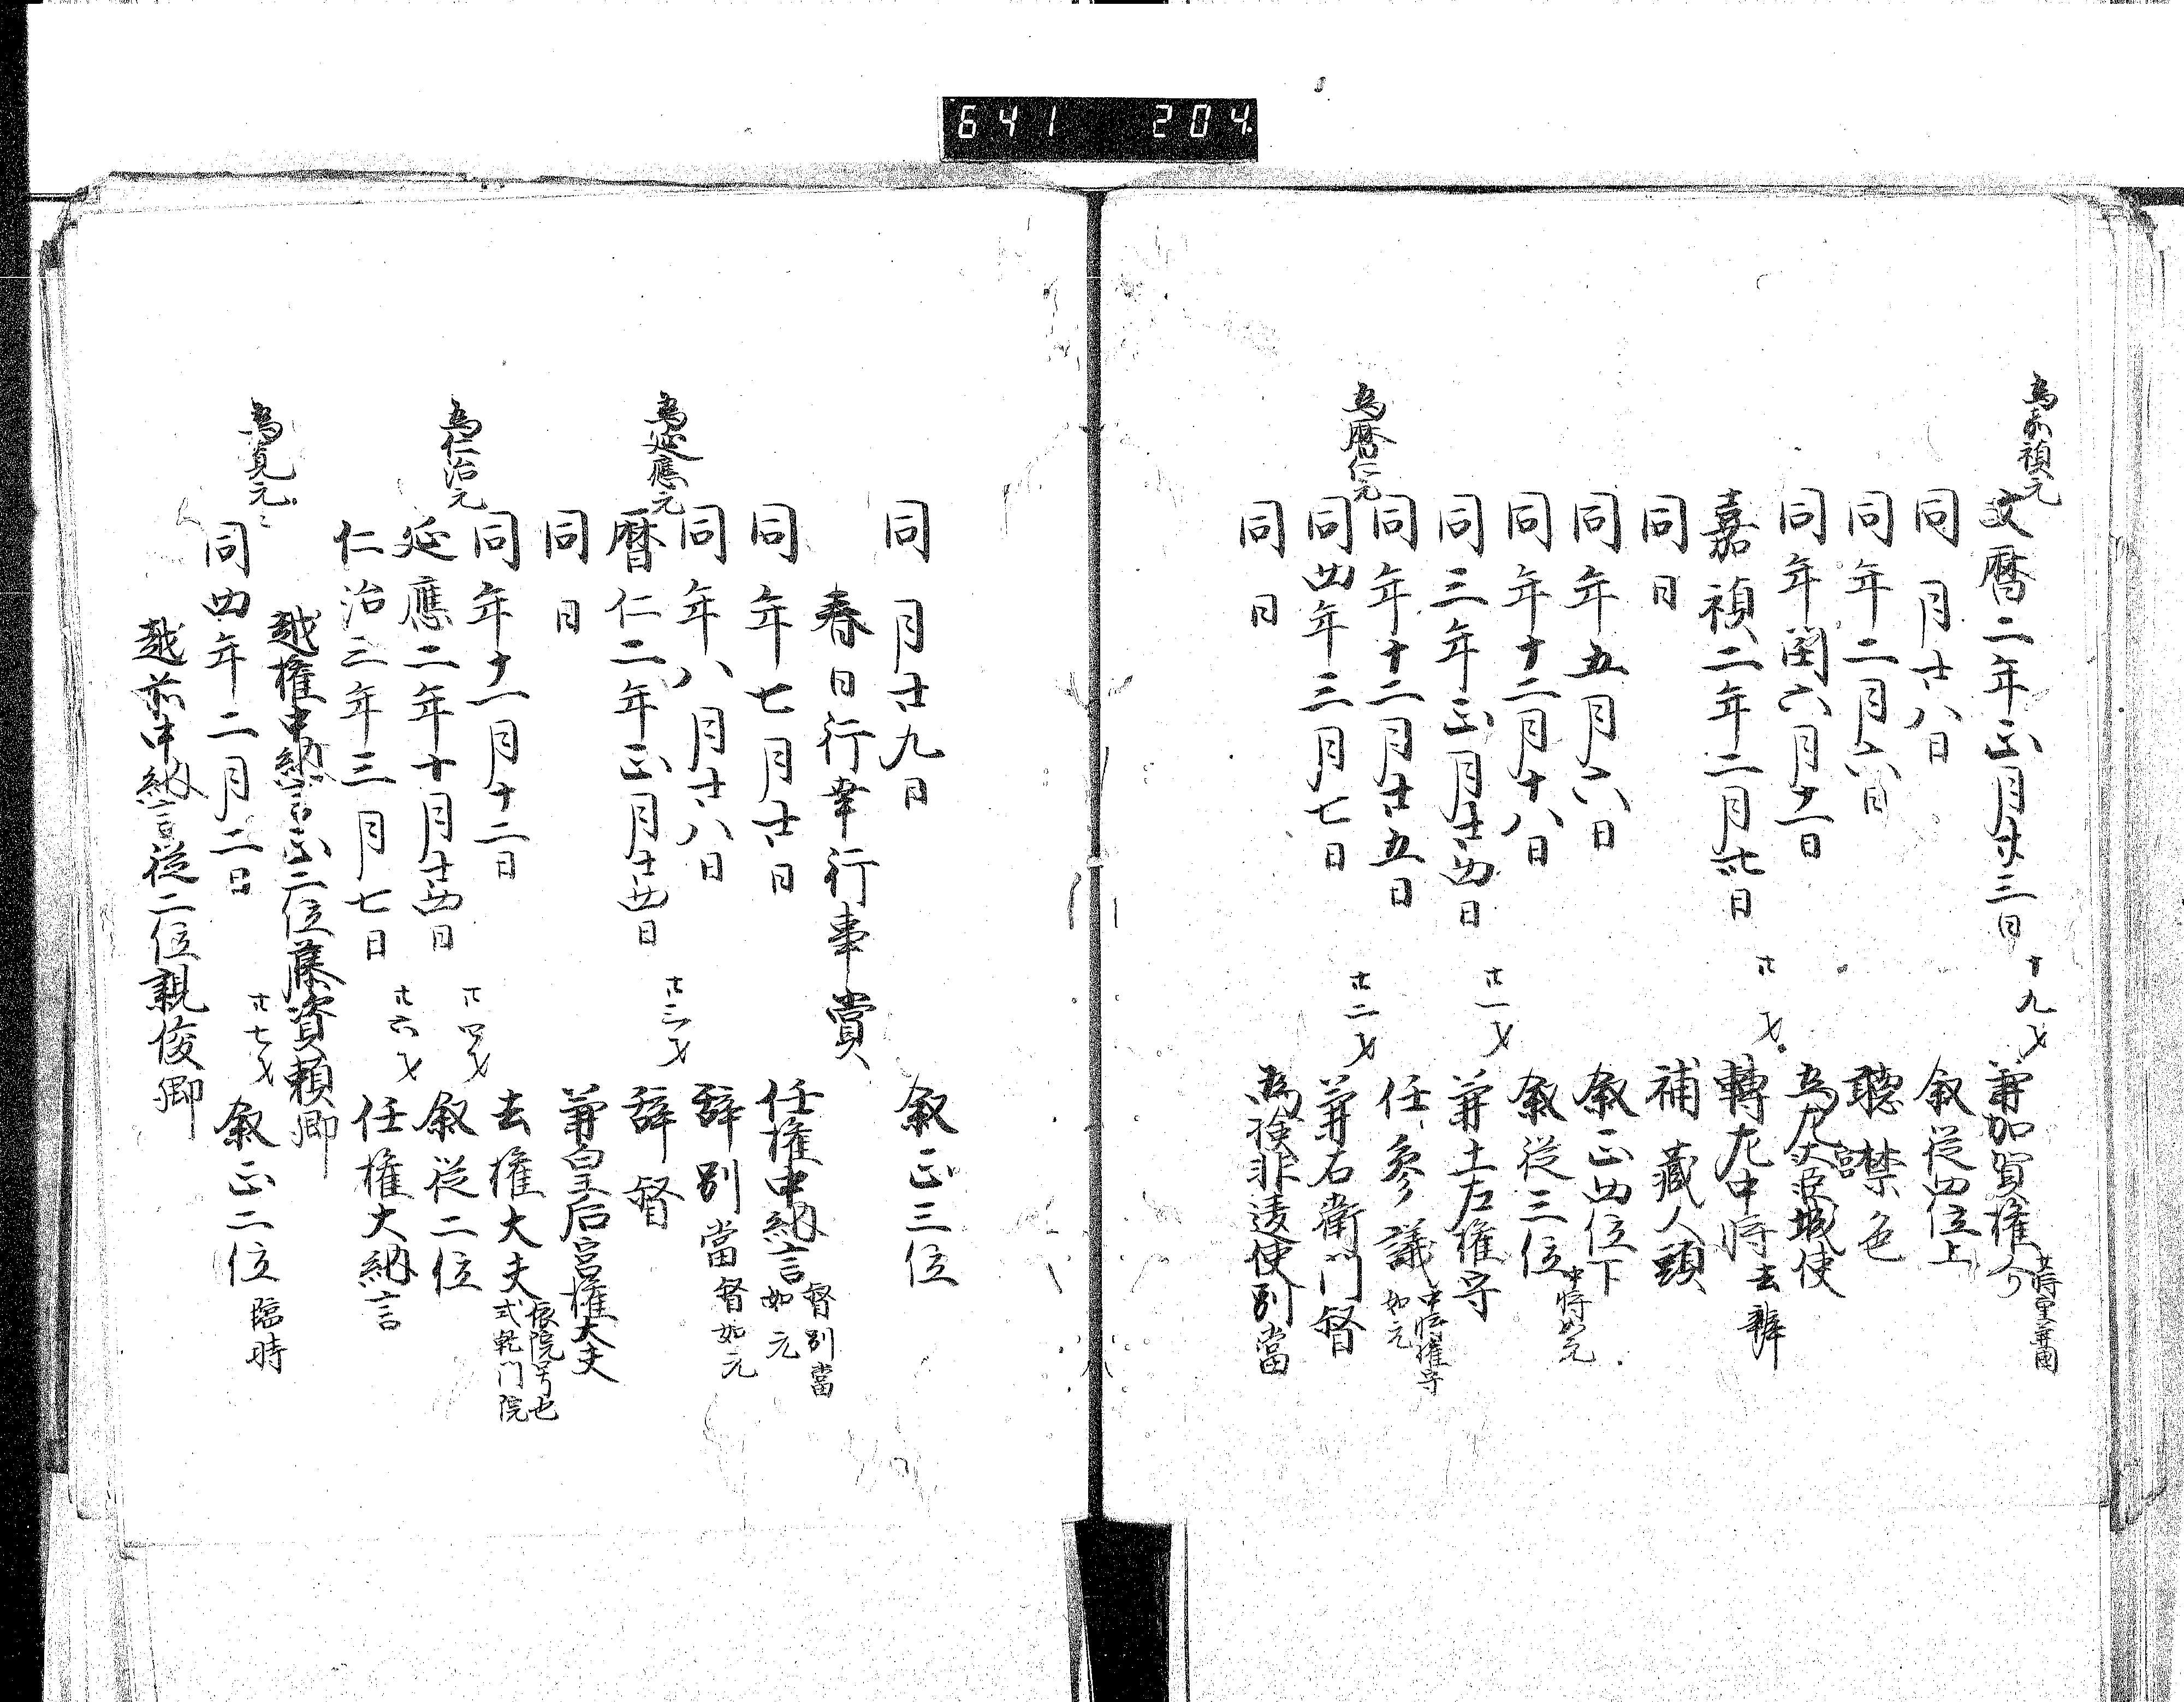 641 204
為嘉禎元
文暦二年正月廿三日 十九才 兼加賀権介
同月廿八日 叙従四位上
同年二月六日 聴禁色
同年閏六月十一日 為尤大臣宮城使
嘉禎二年二月卅日 廿才 転左中将 去弁
同日 補蔵人頭
同年五月六日 叙正四位下
同年十二月十八日 叙従三位 中将如元
同三年正月廿四日 廿一才 兼土左権守
為暦仁元
同年十二月廿五日 任参議 中将権守如元
同四年三月七日 廿二才 兼右衛門督
同日 為検非違使別當
同月廿九日 叙正三位
春日行幸行事賞
同年七月廿日 任権中納言 督別當如元
同年八月廿八日 辞別當 督如元
為延應元
暦仁二年正月廿四日 廿三才 辞督
同日 兼皇后宮権大夫
同年十一月十二日 去権大夫 依院号也 式乾門院
為仁治元
延應二年十月廿四日 廿四才 叙従二位
仁治三年三月七日 廿六才 任権大納言
越権中納言正二位藤資頼卿
為寛元々
同四年二月二日 廿七才 叙正二位 臨時
越前中納言従二位親俊卿